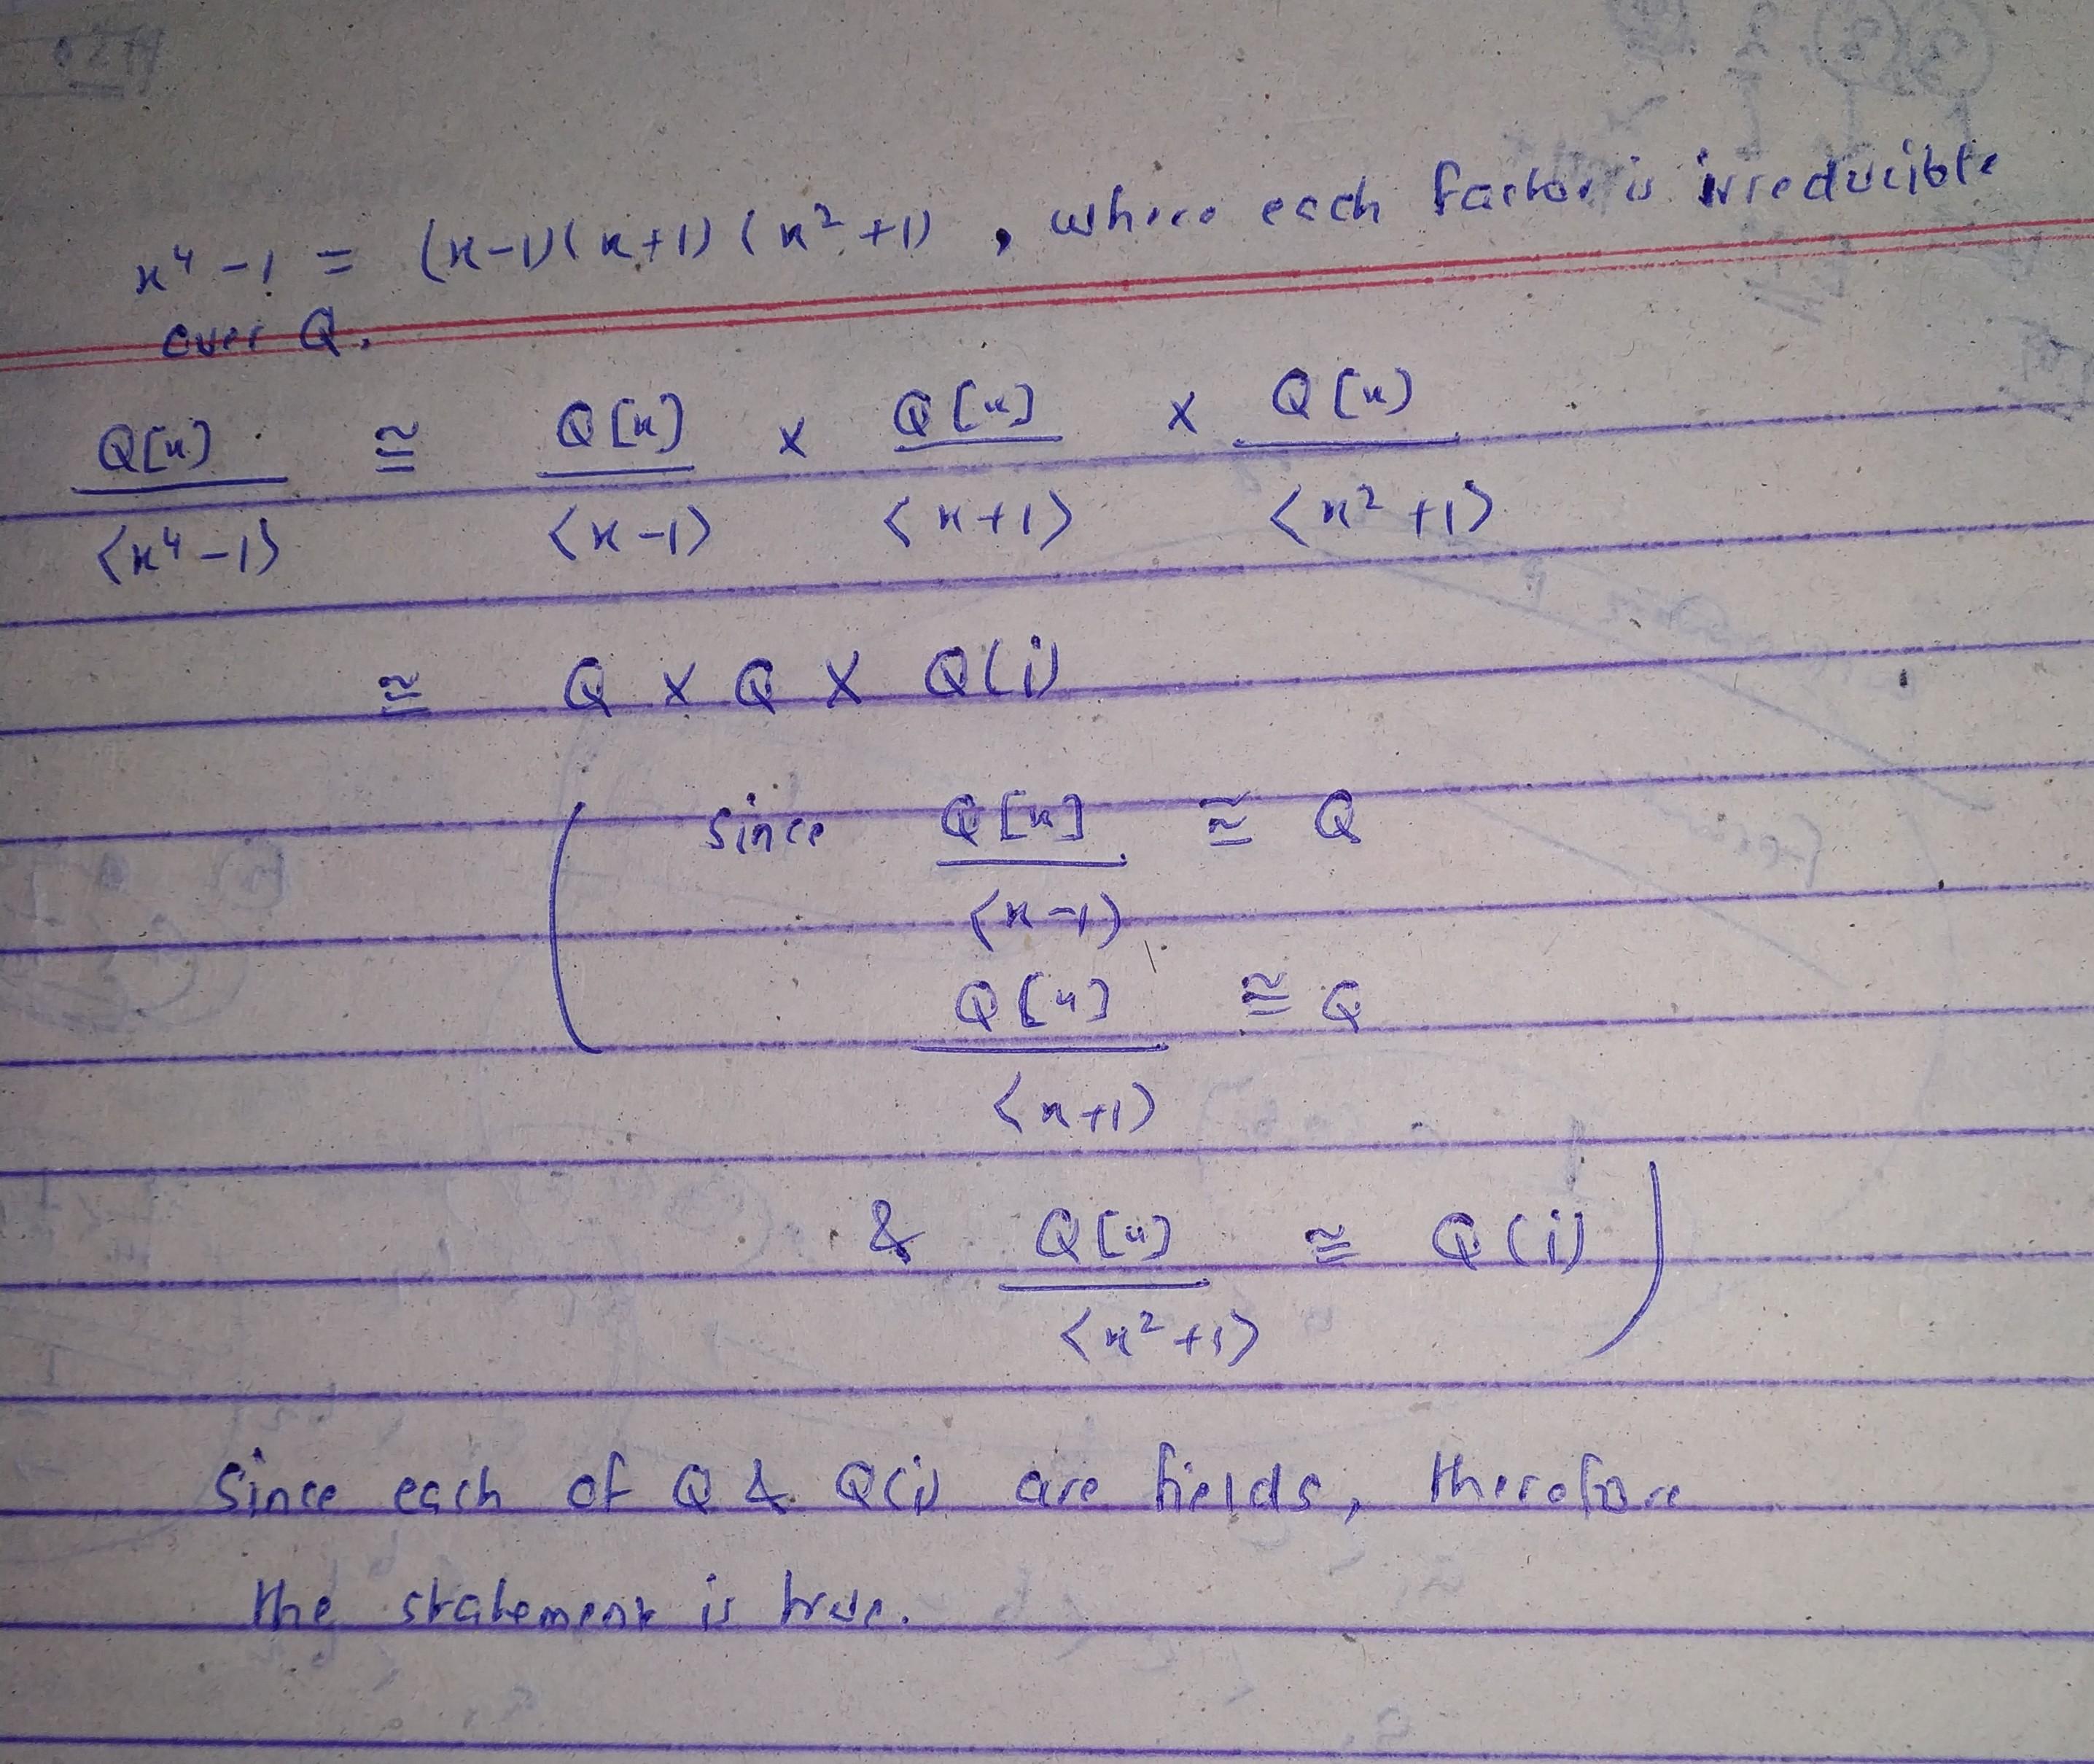 x⁴ - 1 = (x-1)(x+1)(x²+1), where each factor is irreducible
over Q.
Q[x] ≅ Q[x] × Q[x] × Q[x]
<x⁴-1> <x-1> <x+1> <x²+1>
≅ Q × Q × Q(i)
( Since Q[x] ≅ Q
<x-1>
Q[x] ≅ Q
<x+1>
& Q[x] ≅ Q(i) )
<x²+1>
Since each of Q & Q(i) are fields, therefore
the statement is true.